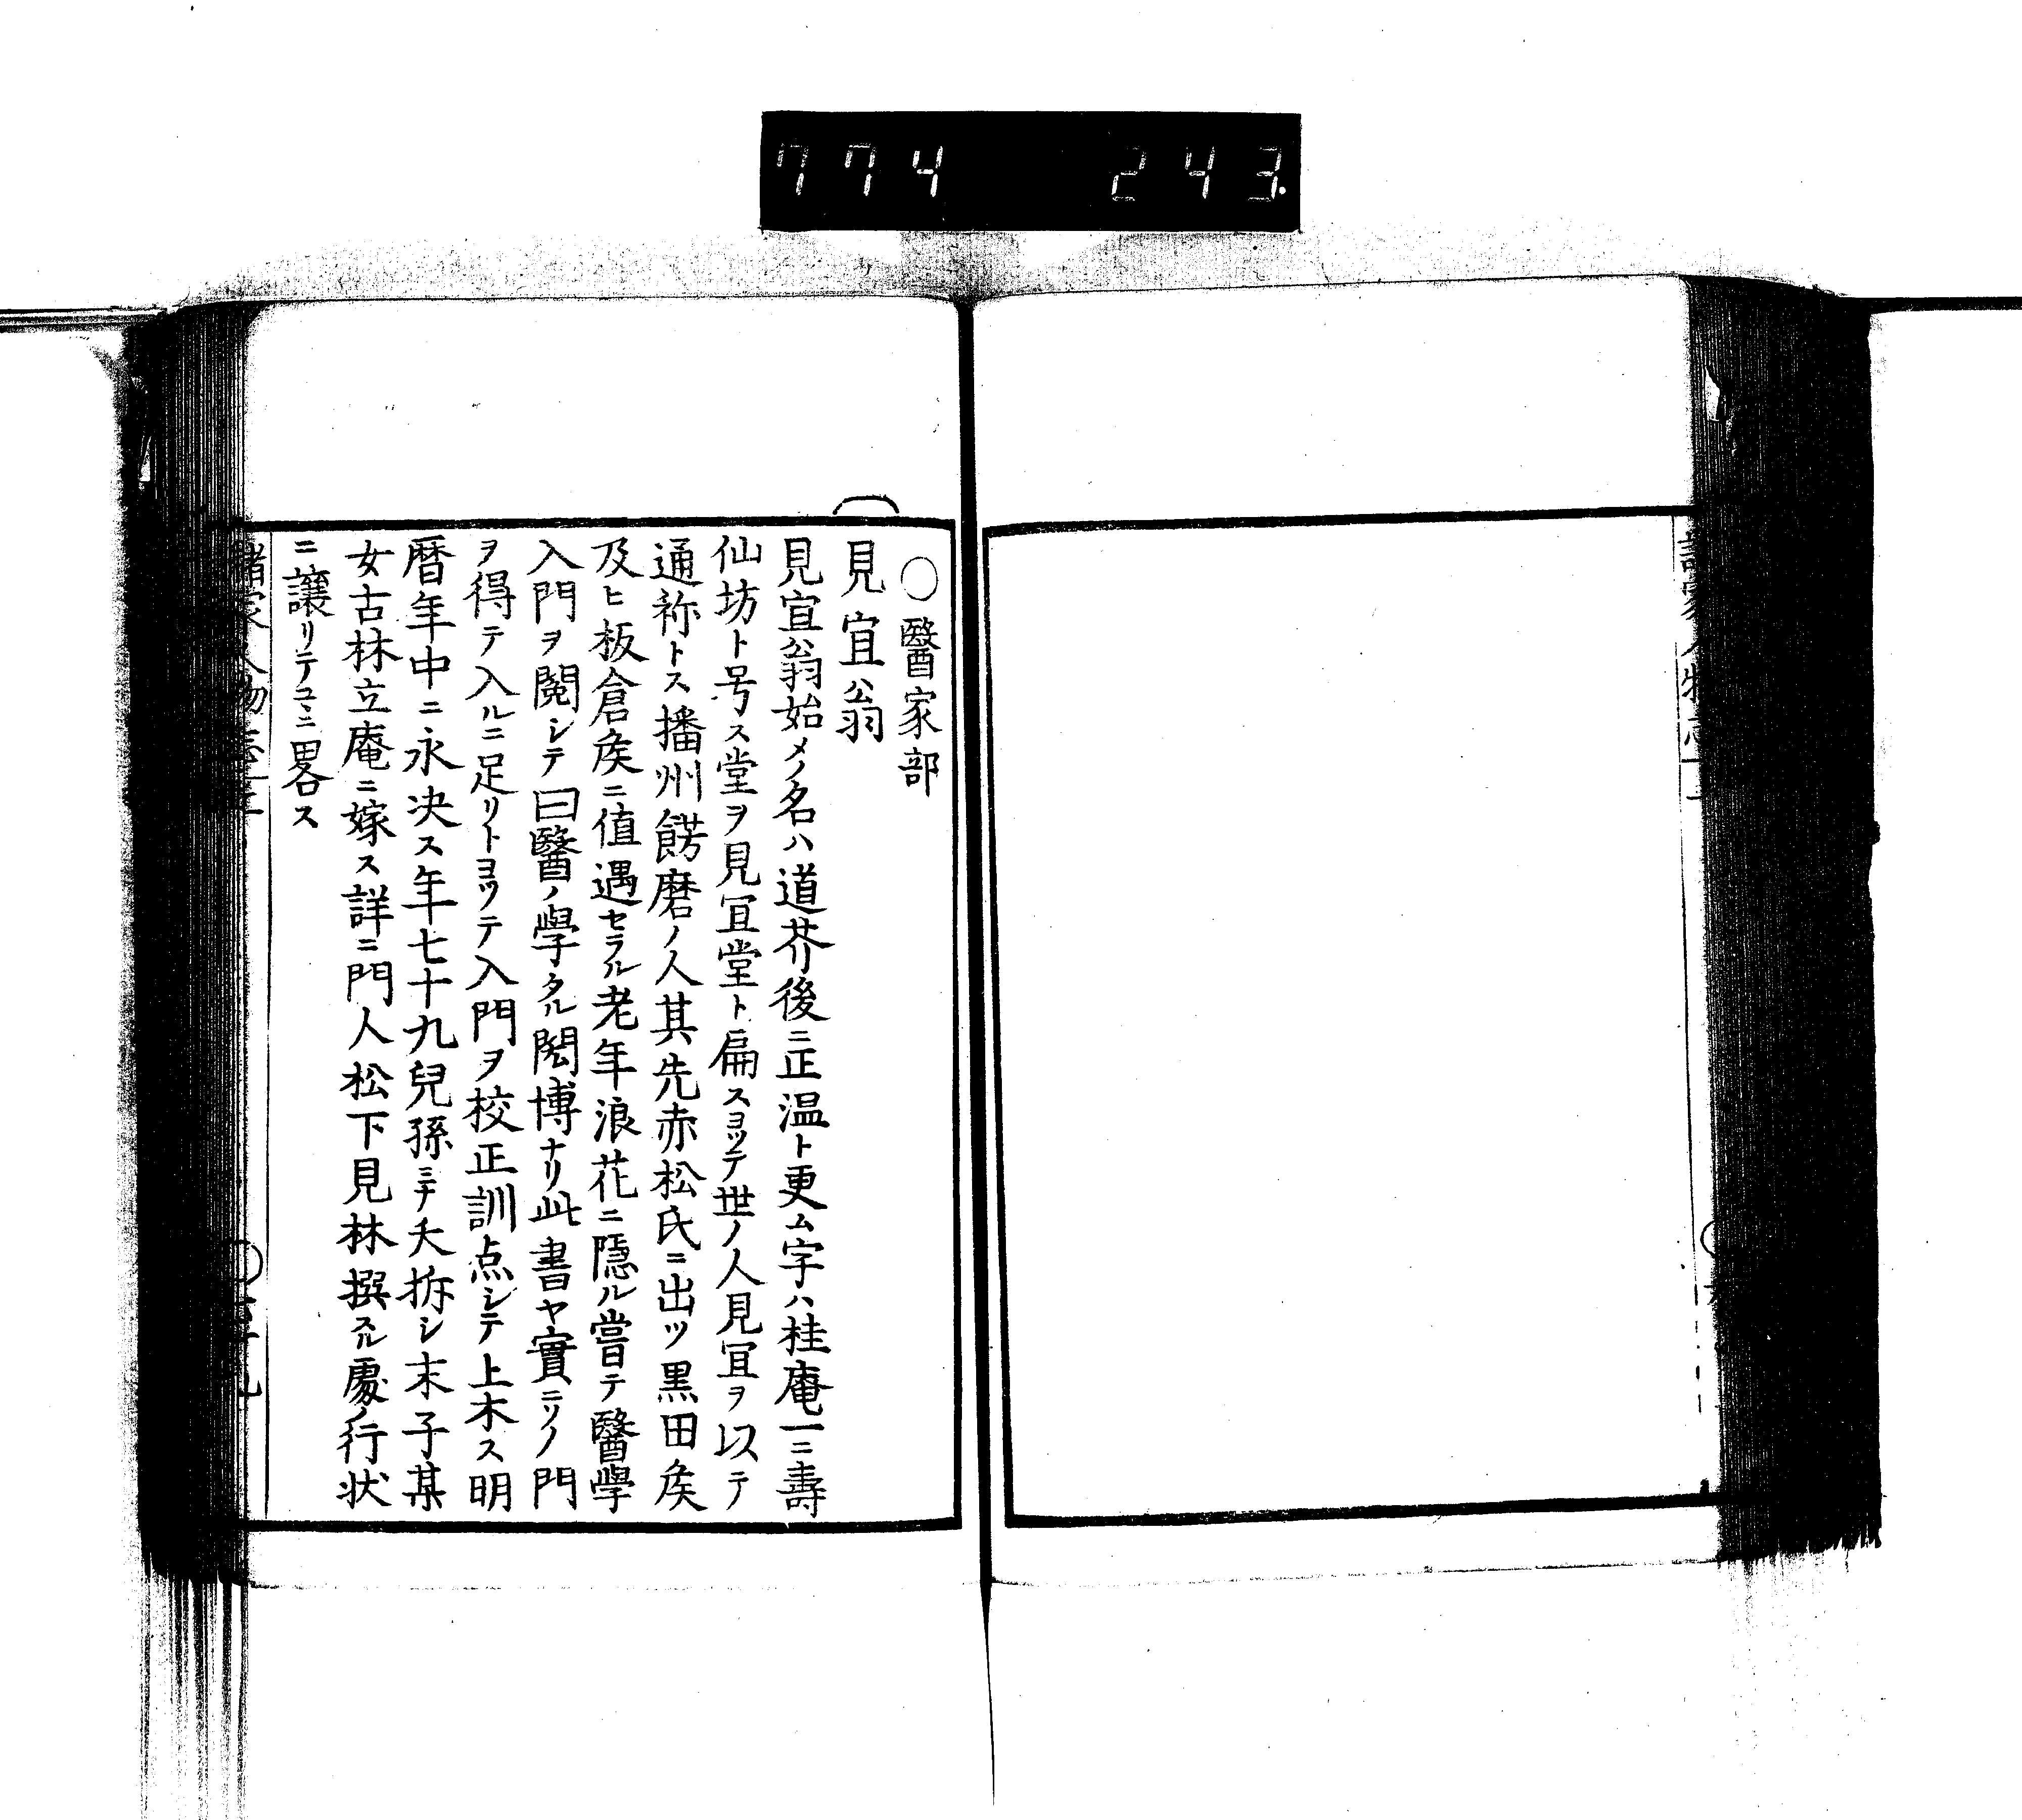 774 243
○醫家部
見宜翁
見宜翁始メノ名ハ道芥後ニ正温ト更ム字ハ桂庵一ニ壽
仙坊ト号ス堂ヲ見宜堂ト扁スヨツテ世ノ人見宜ヲ以テ
通称トス播州餝磨ノ人其先赤松氏ニ出ツ黒田矦
及ヒ板倉矦ニ値遇セラル老年浪花ニ隠ル嘗テ醫學
入門ヲ閲シテ曰醫ノ學タル閎博ナリ此書ヤ實ニソノ門
ヲ得テ入ルニ足リトヨツテ入門ヲ校正訓点シテ上木ス明
暦年中ニ永决ス年七十九兒孫ミナ夭拆シ末子某
女古林立庵ニ嫁ス詳ニ門人松下見林撰スル處ノ行状
ニ譲リテコヽニ畧ス